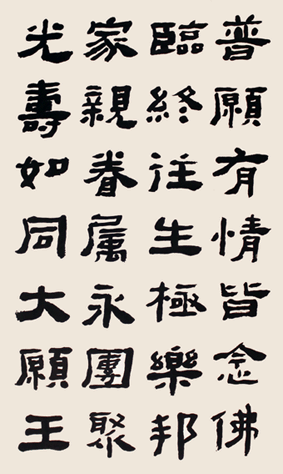 普願有情皆念佛
臨終往生極樂邦
家親眷属永團聚
光壽如同大願王